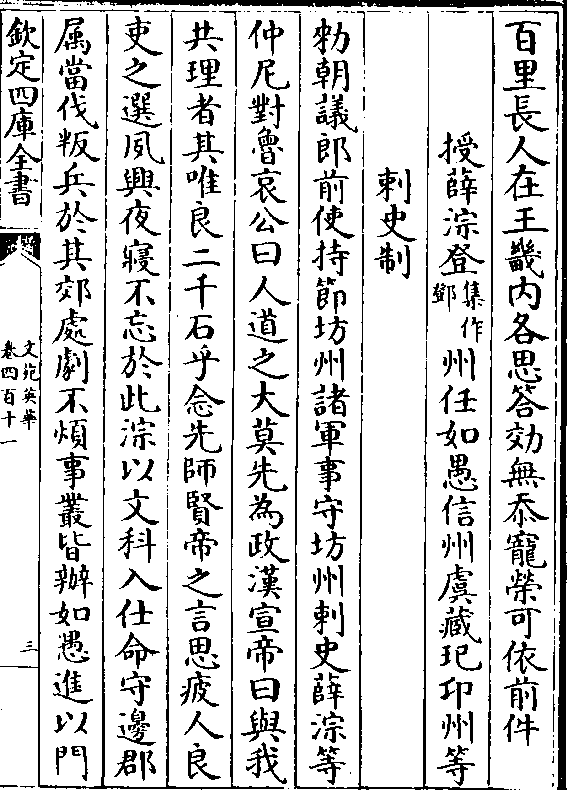 百里長人在王畿内各思答効無忝寵榮可依前件
授薛淙登集作鄧州任如愚信州虞藏玘卭州等
刺史制
勑朝議郎前使持節坊州諸軍事守坊州刺史薛淙等
仲尼對魯哀公曰人道之大莫先為政漢宣帝曰與我
共理者其唯良二千石乎念先師賢帝之言思疲人良
吏之選夙興夜寢不忘於此淙以文科入仕命守邊郡
属當伐叛兵於其郊處劇不煩事叢皆辦如愚進以門
欽定四庫全書
文苑英華
卷四百十一
三